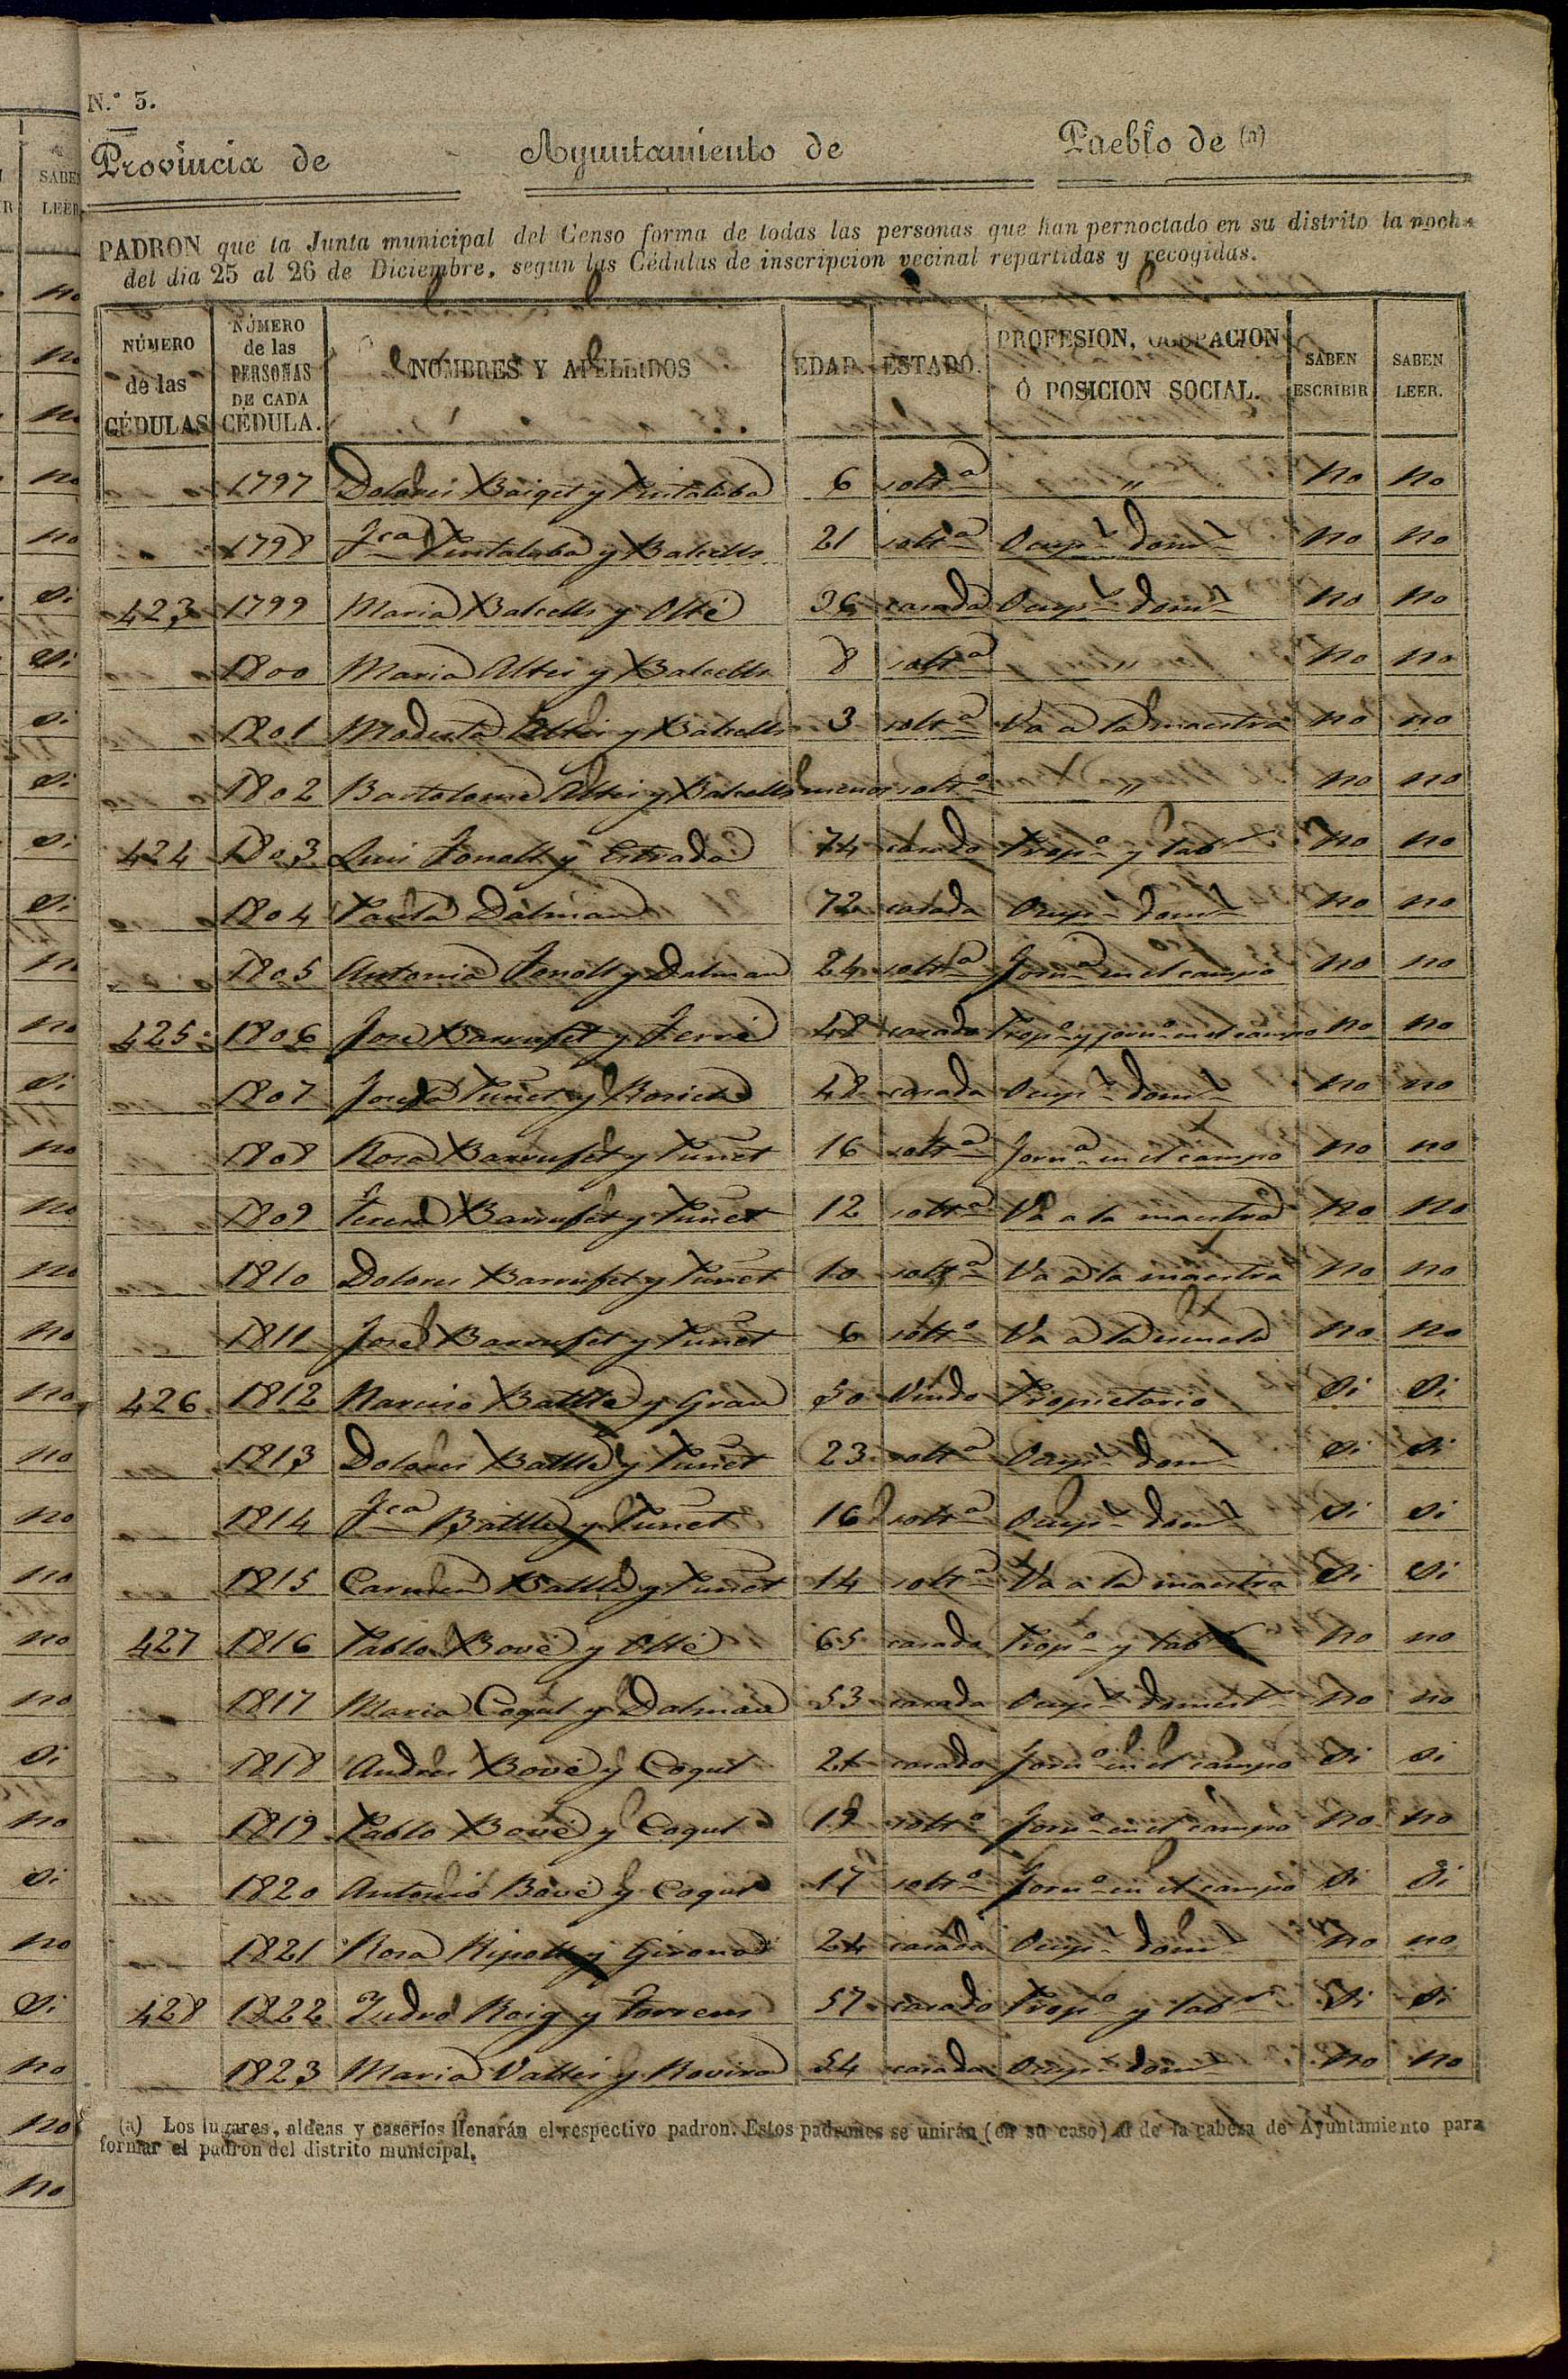 N.º 5.
Provincia de Ayuntamiento de Pueblo de (a)
PADRON que la Junta municipal del Censo forma de todas las personas que han pernoctado en su distrito la noche
del dia 25 al 26 de Diciembre, segun las Cédulas de inscripcion vecinal repartidas y recogidas.
NÚMERO de las CÉDULAS NÚMERO de las PERSONAS DE CADA CÉDULA. NOMBRES Y APELLIDOS EDAD. ESTADO. PROFESION, OCUPACION Ó POSICION SOCIAL. SABEN ESCRIBIR SABEN LEER.
1797 Dolores Baiget y 6 solt.ª " no no
1798 Fca y Balcells 21 solt.ª Ocup.s dom.s no no
423 1799 Maria Balcells y Ollé 36 casada Ocup.s dom.s no no
1800 Maria Altés y Balcells 8 solt.ª " no no
1801 Modesta Altés y Balcells 3 solt.ª Va a la maestra no no
1802 Bartolome Altés y Balcells menor solt.º " no no
424 1803 Luis Fonoll y Estrada 74 casado Prop.º y lab.r no no
1804 Paula Dalmau 72 casada Ocup.s dom.s no no
1805 Antonia Fonoll y Dalmau 24 solt.ª Jorn.ª en el campo no no
425 1806 José Barrufet y Ferré 48 casado Prop.º y jorn.º en el campo no no
1807 Josefa Tuñet y 48 casada Ocup.s dom.s no no
1808 Rosa Barrufet y Tuñet 16 solt.ª Jorn.ª en el campo no no
1809 Teresa Barrufet y Tuñet 12 solt.ª Va a la maestra no no
1810 Dolores Barrufet y Tuñet 10 solt.ª Va a la maestra no no
1811 José Barrufet y Tuñet 6 solt.º Va a la escuela no no
426 1812 Narciso Batlle y Grau 50 Viudo Propietario Si Si
1813 Dolores Batlle y Tuñet 23 solt.ª Ocup.s dom.s Si Si
1814 Fca Batlle y Tuñet 16 solt.ª Ocup.s dom.s Si Si
1815 Carmen Batlle y Tuñet 14 solt.ª Va a la maestra Si Si
427 1816 Pablo Bové y Ollé 65 casado Prop.º y lab.r no no
1817 Maria Coqul y Dalmau 53 casada Ocup.s domest.s no no
1818 Andres Bové y Coqul 21 casado Jorn.º en el campo Si si
1819 Pablo Bové y Coqul 19 solt.º Jorn.º en el campo no no
1820 Antonio Bové y Coqul 17 solt.º Jorn.º en el campo Si Si
1821 Rosa Ripoll y Girona 24 casada Ocup.s dom.s no no
428 1822 Roig y Torrens 57 casado Prop.º y lab.r Si Si
1823 Maria Vallés y Rovira 54 casada Ocup.s dom.s no no
(a) Los lugares, aldeas y caserios llenarán el respectivo padron. Estos padrones se unirán (en su caso) al de la cabeza de Ayuntamiento para
formar el padron del distrito municipal.